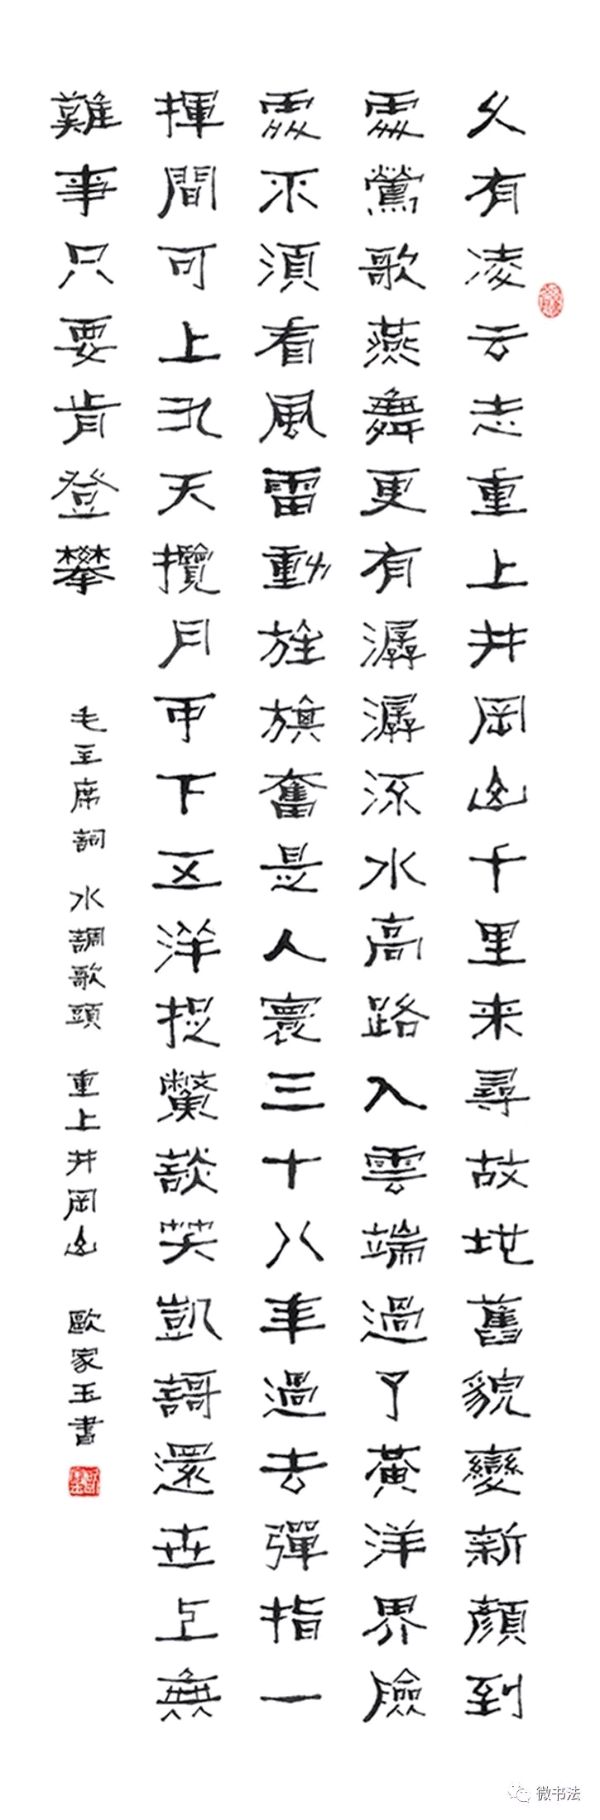 久有凌云志重上井岡山千里来尋故地舊貌變新顔到
處鶯歌燕舞更有潺潺流水高路入雲端過了黃洋界險
處不須看風雷動旌旗奮是人寰三十八年過去彈指一
揮間可上九天攬月可下五洋捉鱉談笑凱謌還世上無
難事只要肯登攀
毛主席詞 水調歌頭 重上井岡山 歐家玉書
微书法